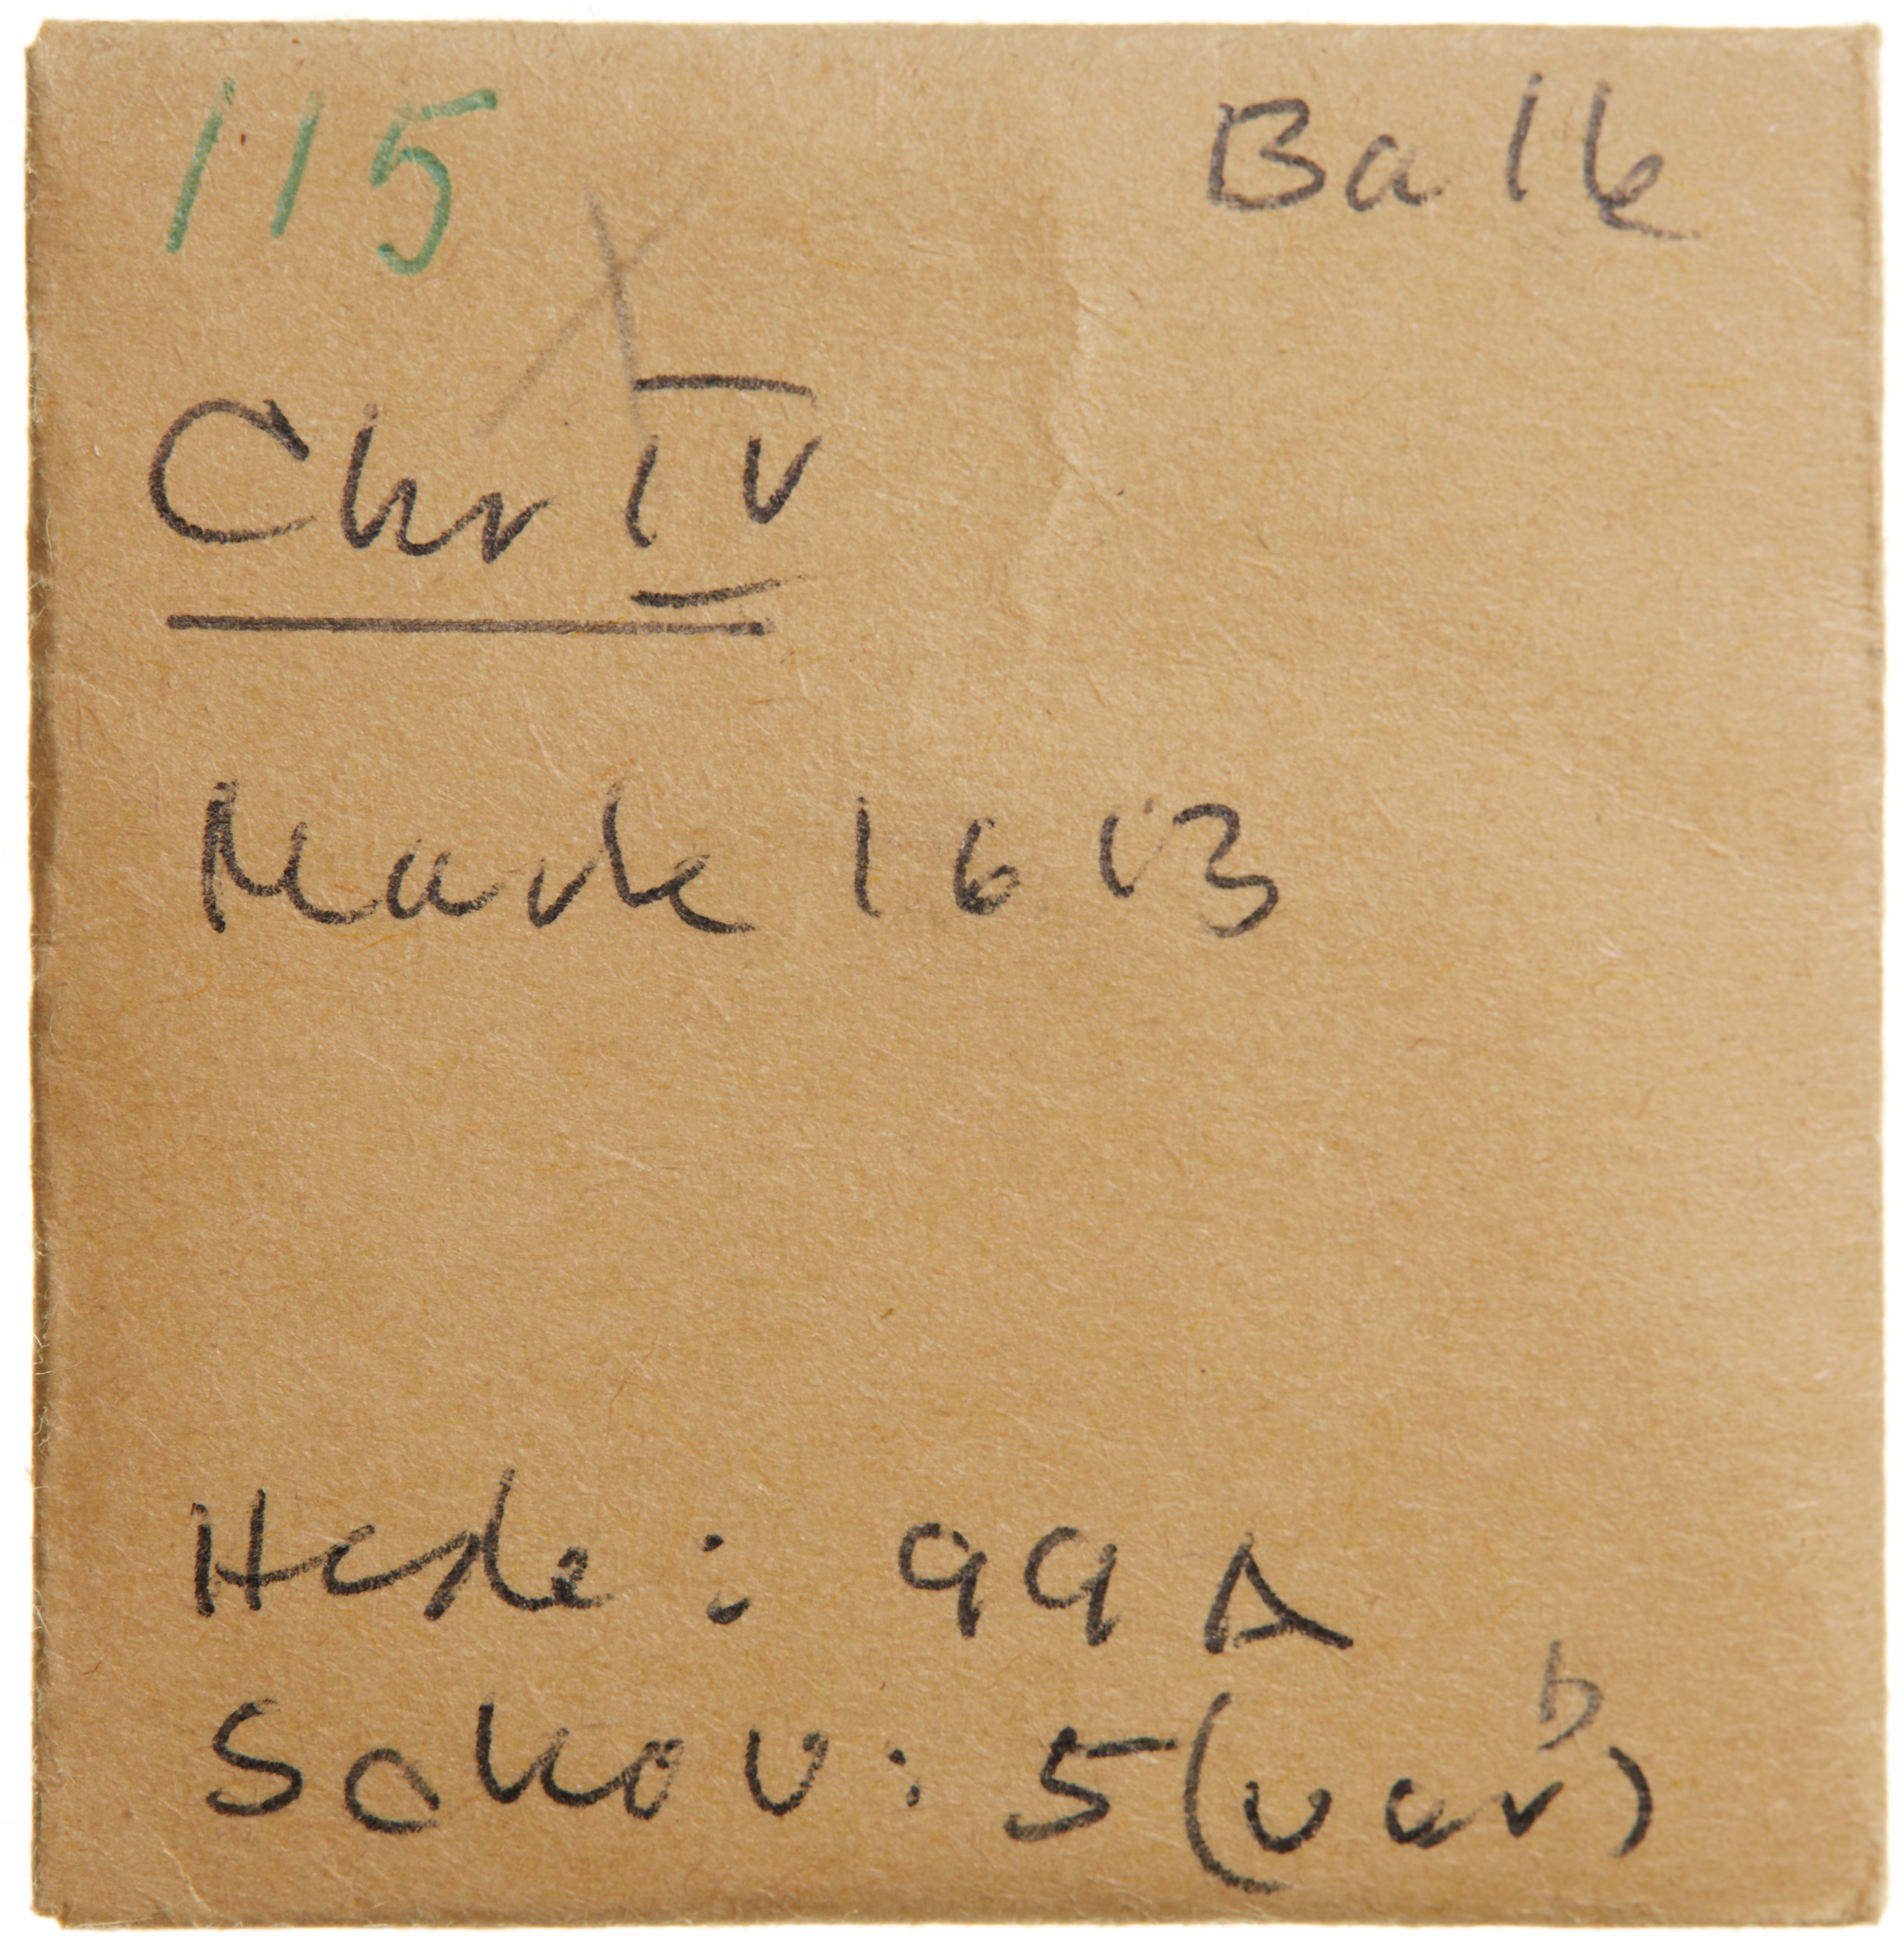 115 Ba 16
Chr IV
Mark 1613
Hede: 99 A
Schou: 5 (var b)